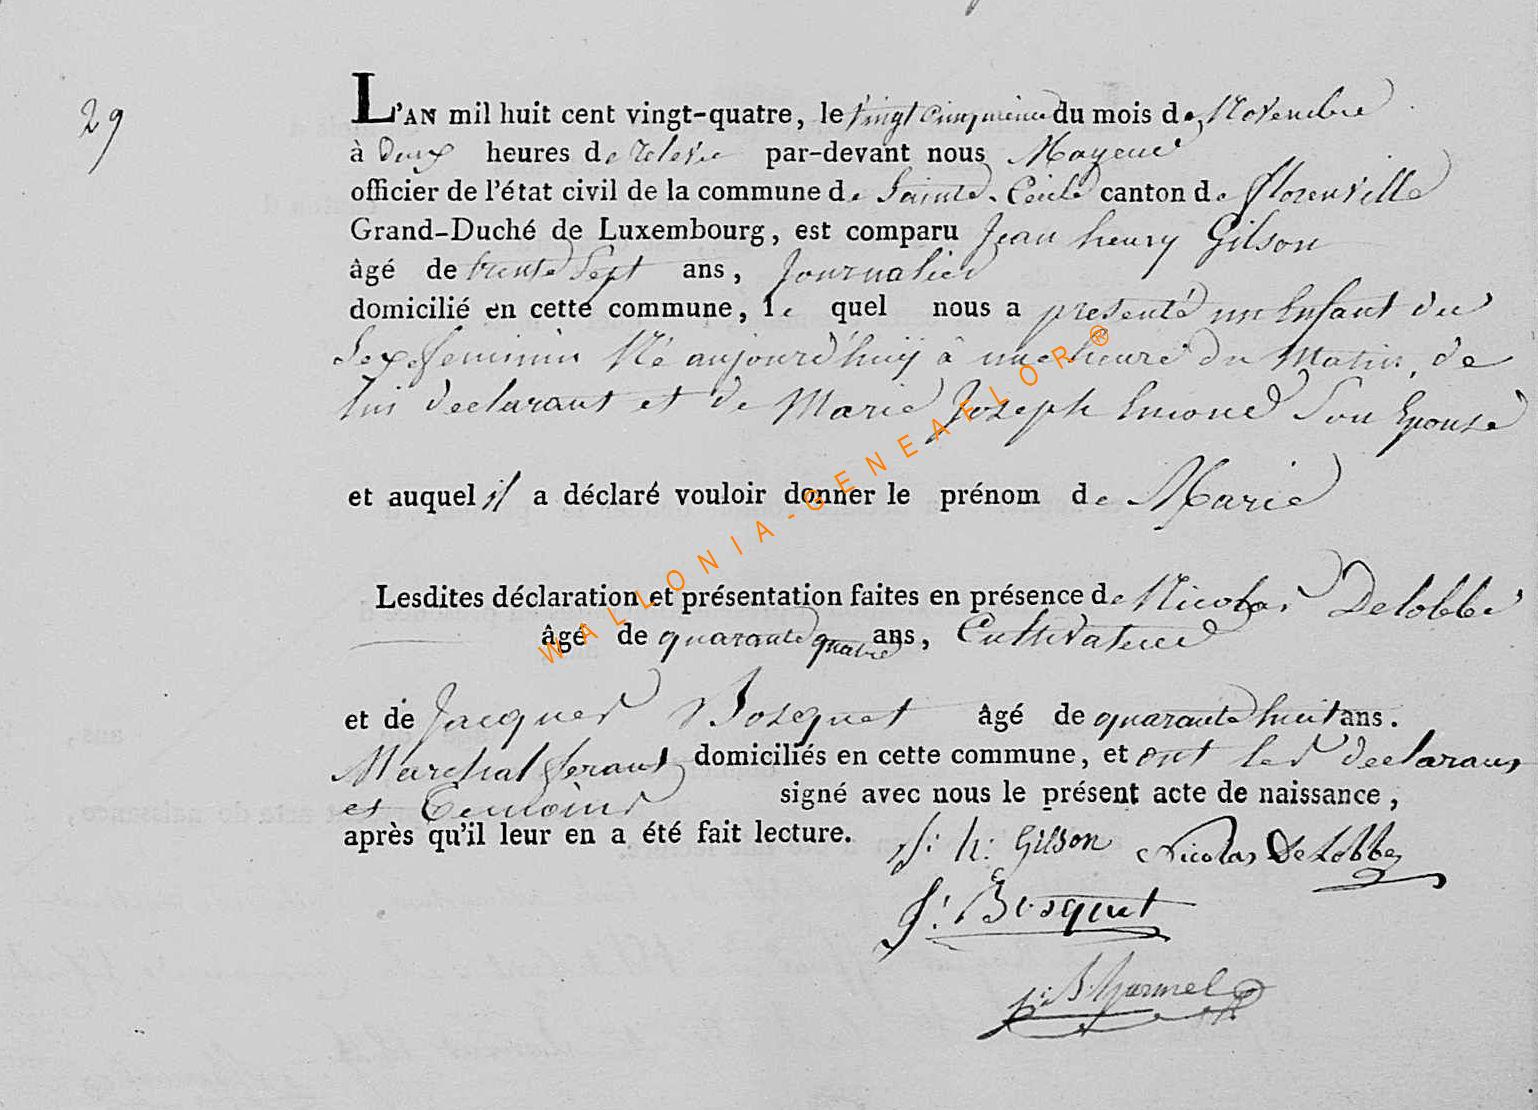 29
L'AN mil huit cent vingt-quatre, le vingt cinquieme du mois de Novembre
à deux heures de relevé par-devant nous Mayeur
officier de l'état civil de la commune de Sainte-Cecile canton de florenville
Grand-Duché de Luxembourg, est comparu Jean henry Gilson
âgé de trente Sept ans, Journalier
domicilié en cette commune, le quel nous a presenté un Enfant du
Sexe feminin Né aujourd'huÿ à une heure du Matin, de
lui declarant et de Marie Joseph Emond Son Epouse
et auquel il a déclaré vouloir donner le prénom de Marie
Lesdites déclaration et présentation faites en présence de Nicolas Delobbe
âgé de quarante quatre ans, Cultivateur
et de Jacques Bosquet âgé de quarante huit ans.
Marchal ferant domiciliés en cette commune, et ont les declarans
et Temoins signé avec nous le présent acte de naissance,
après qu'il leur en a été fait lecture.
J: h: Gilson Nicolas DeLobbe
J: Bosquet
WALLONIA-GENEAFLOR®